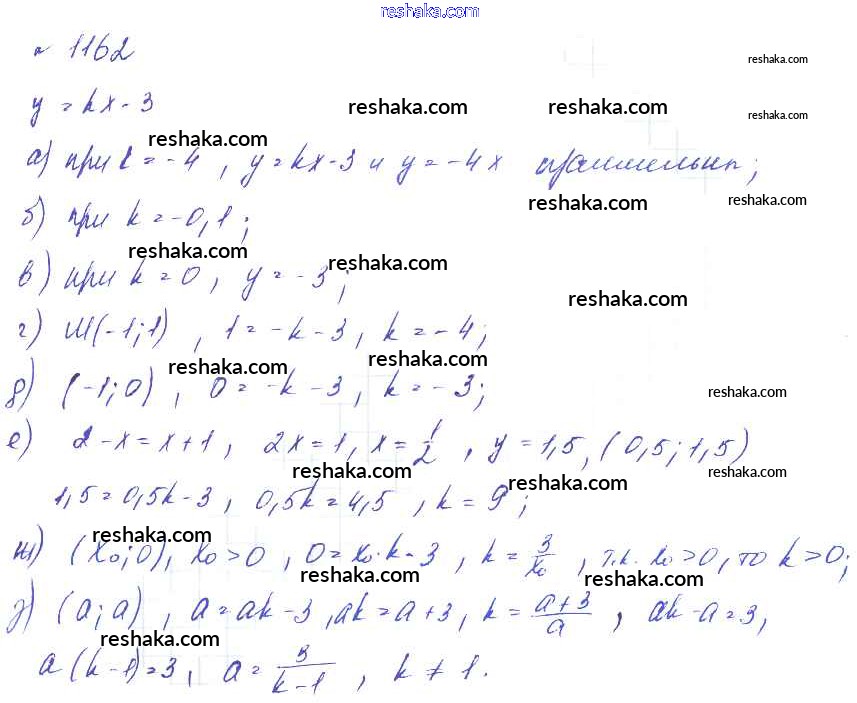 reshaka.com
№ 1162
reshaka.com
y = kx - 3
reshaka.com reshaka.com reshaka.com
reshaka.com
а) при k = -4, y = kx - 3 и y = -4x параллельны;
reshaka.com reshaka.com
б) при k = -0,1;
reshaka.com reshaka.com
в) при k = 0, y = -3;
reshaka.com
г) M(-1;1), 1 = -k - 3, k = -4;
reshaka.com reshaka.com
д) (-1;0), 0 = -k - 3, k = -3;
reshaka.com
е) 2 - x = x + 1, 2x = 1, x = 1/2, y = 1,5, (0,5;1,5)
reshaka.com reshaka.com reshaka.com
1,5 = 0,5k - 3, 0,5k = 4,5, k = 9;
reshaka.com
ж) (x₀;0), x₀ > 0, 0 = x₀·k - 3, k = 3/x₀, т.к. x₀ > 0, то k > 0;
reshaka.com reshaka.com
з) (a;a), a = ak - 3, ak = a + 3, k = (a+3)/a, ak - a = 3,
reshaka.com
a(k-1) = 3, a = 3/(k-1), k ≠ 1.